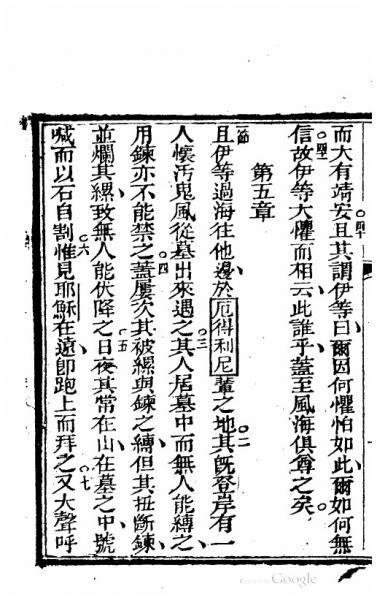 而大有靖安且其謂伊等曰爾因何懼怕如此爾如何無
信故伊等大懼而相云此誰乎蓋至風海俱尊之矣
第五章
且伊等過海往他邊於厄得利尼輩之地其旣登岸有一
人懷汚鬼風從墓出來遇之其人居墓中而無人能縛之
用鍊亦不能禁之蓋屢次其被縲與鍊之縛但其扭斷鍊
並爛其縲致無人能伏降之日夜其常在山在墓之中號
喊而以石自割惟見耶穌在遠卽跑上而拜之又大聲呼
Google